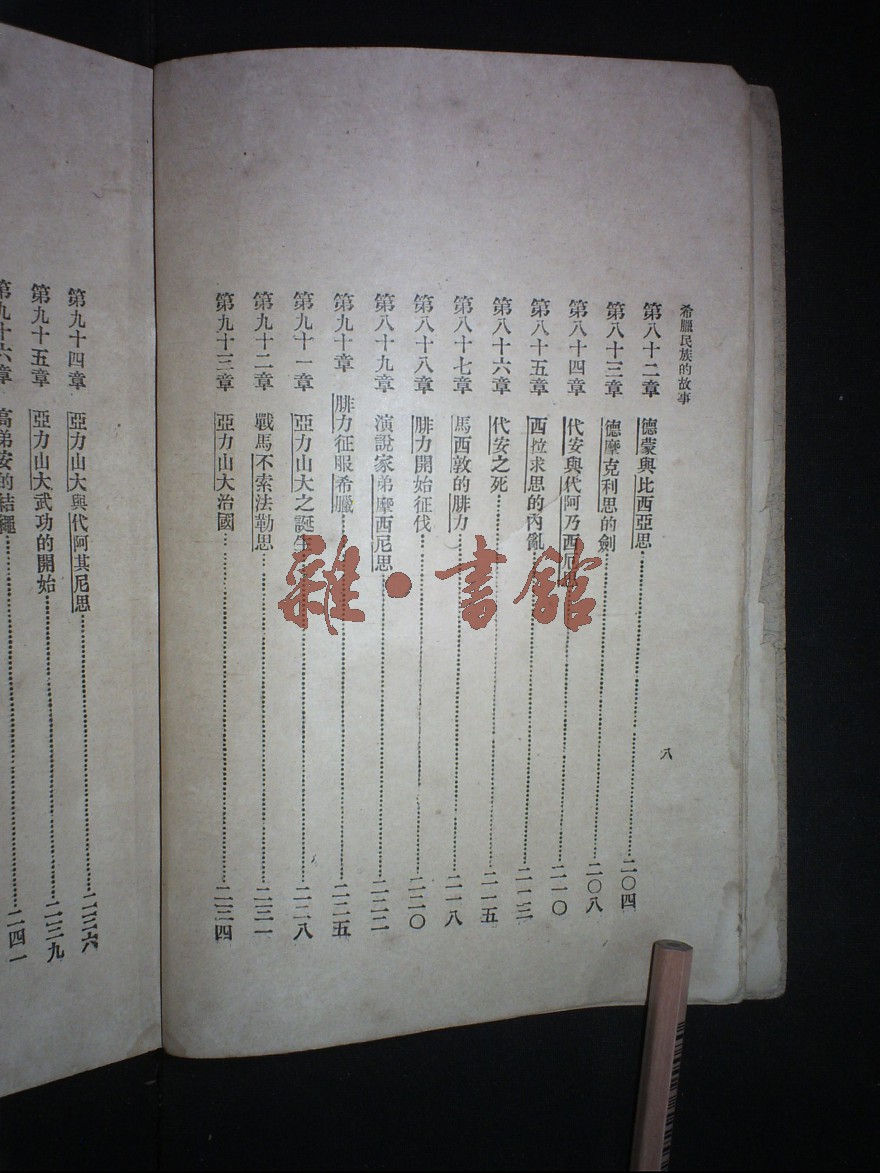 希臘民族的故事
第八十二章 德蒙與比西亞思……二〇四
第八十三章 德摩克利思的劍……二〇八
第八十四章 代安與代阿乃西尼思……二一〇
第八十五章 西拉求思的內亂……二一三
第八十六章 代安之死……二一五
第八十七章 馬西敦的腓力……二一八
第八十八章 腓力開始征伐……二二〇
第八十九章 演說家弟摩西尼思……二二二
第九十章 腓力征服希臘……二二五
第九十一章 亞力山大之誕生……二二八
第九十二章 戰馬不索法勒思……二三一
第九十三章 亞力山大治國……二三四
八
第九十四章 亞力山大與代阿其尼思……二三六
第九十五章 亞力山大武功的開始……二三九
第九十六章 高弟安的結繩……二四一
雜·書館